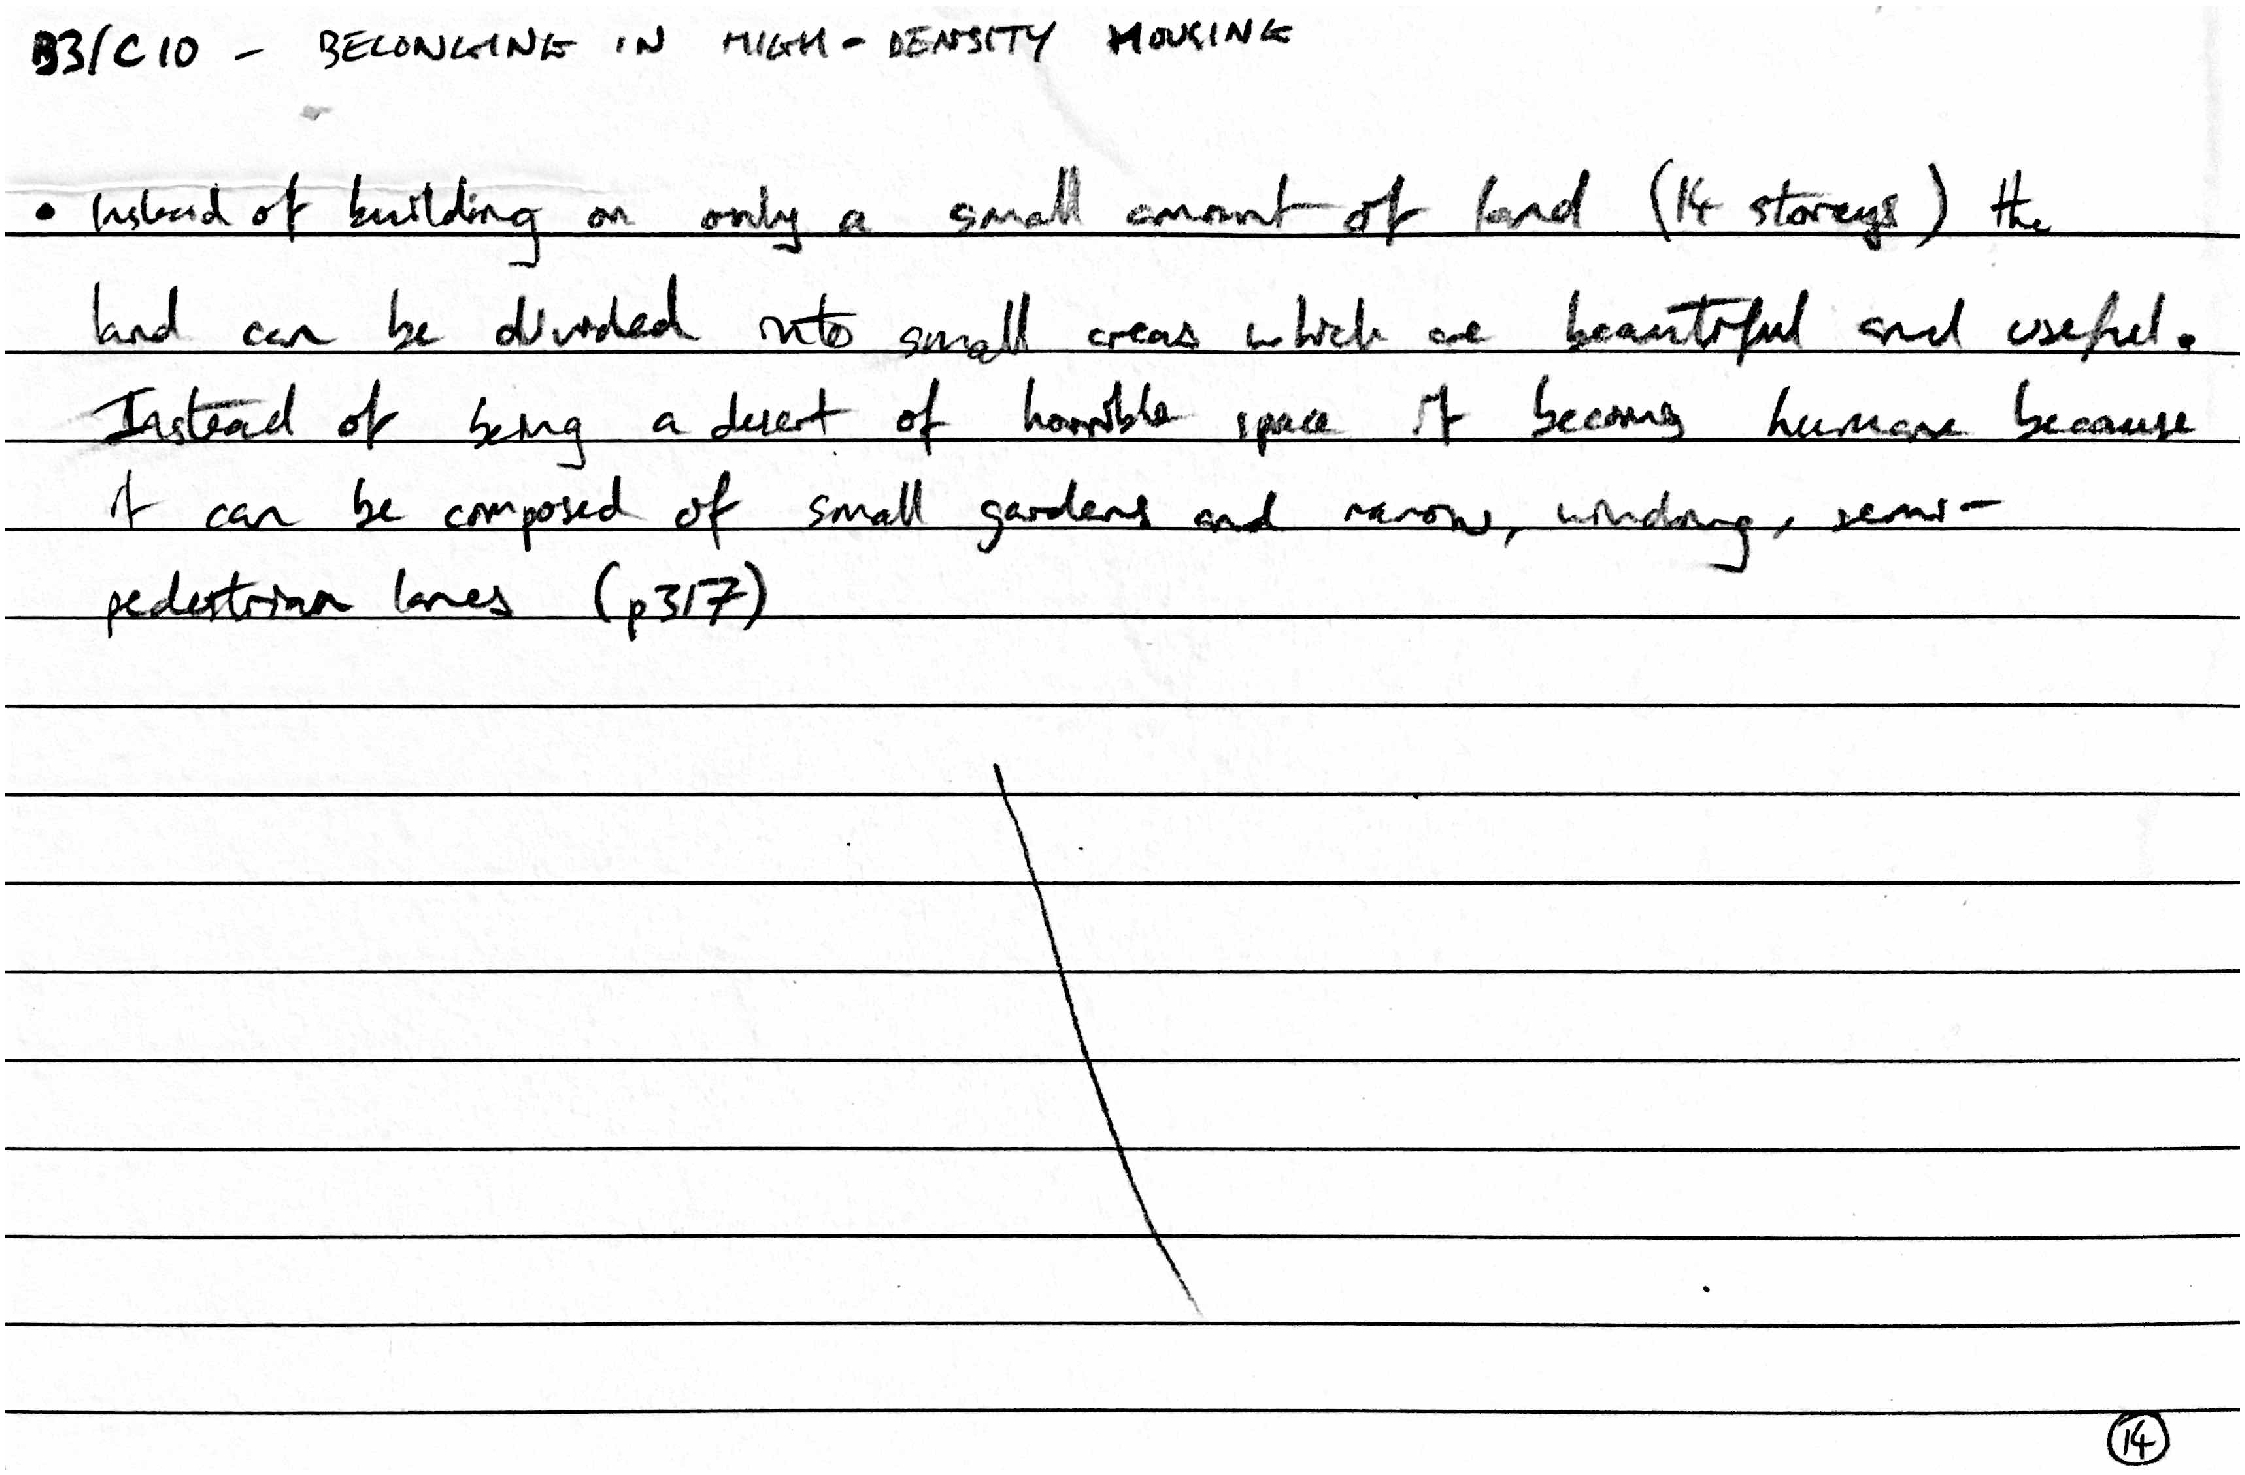 B3/C10 - BELONGING IN HIGH-DENSITY HOUSING
• Instead of building on only a small amount of land (14 storeys) the
land can be divided into small areas which are beautiful and useful.
Instead of being a desert of horrible space it becomes humane because
it can be composed of small gardens and narrow, winding, semi-
pedestrian lanes (p317)
14